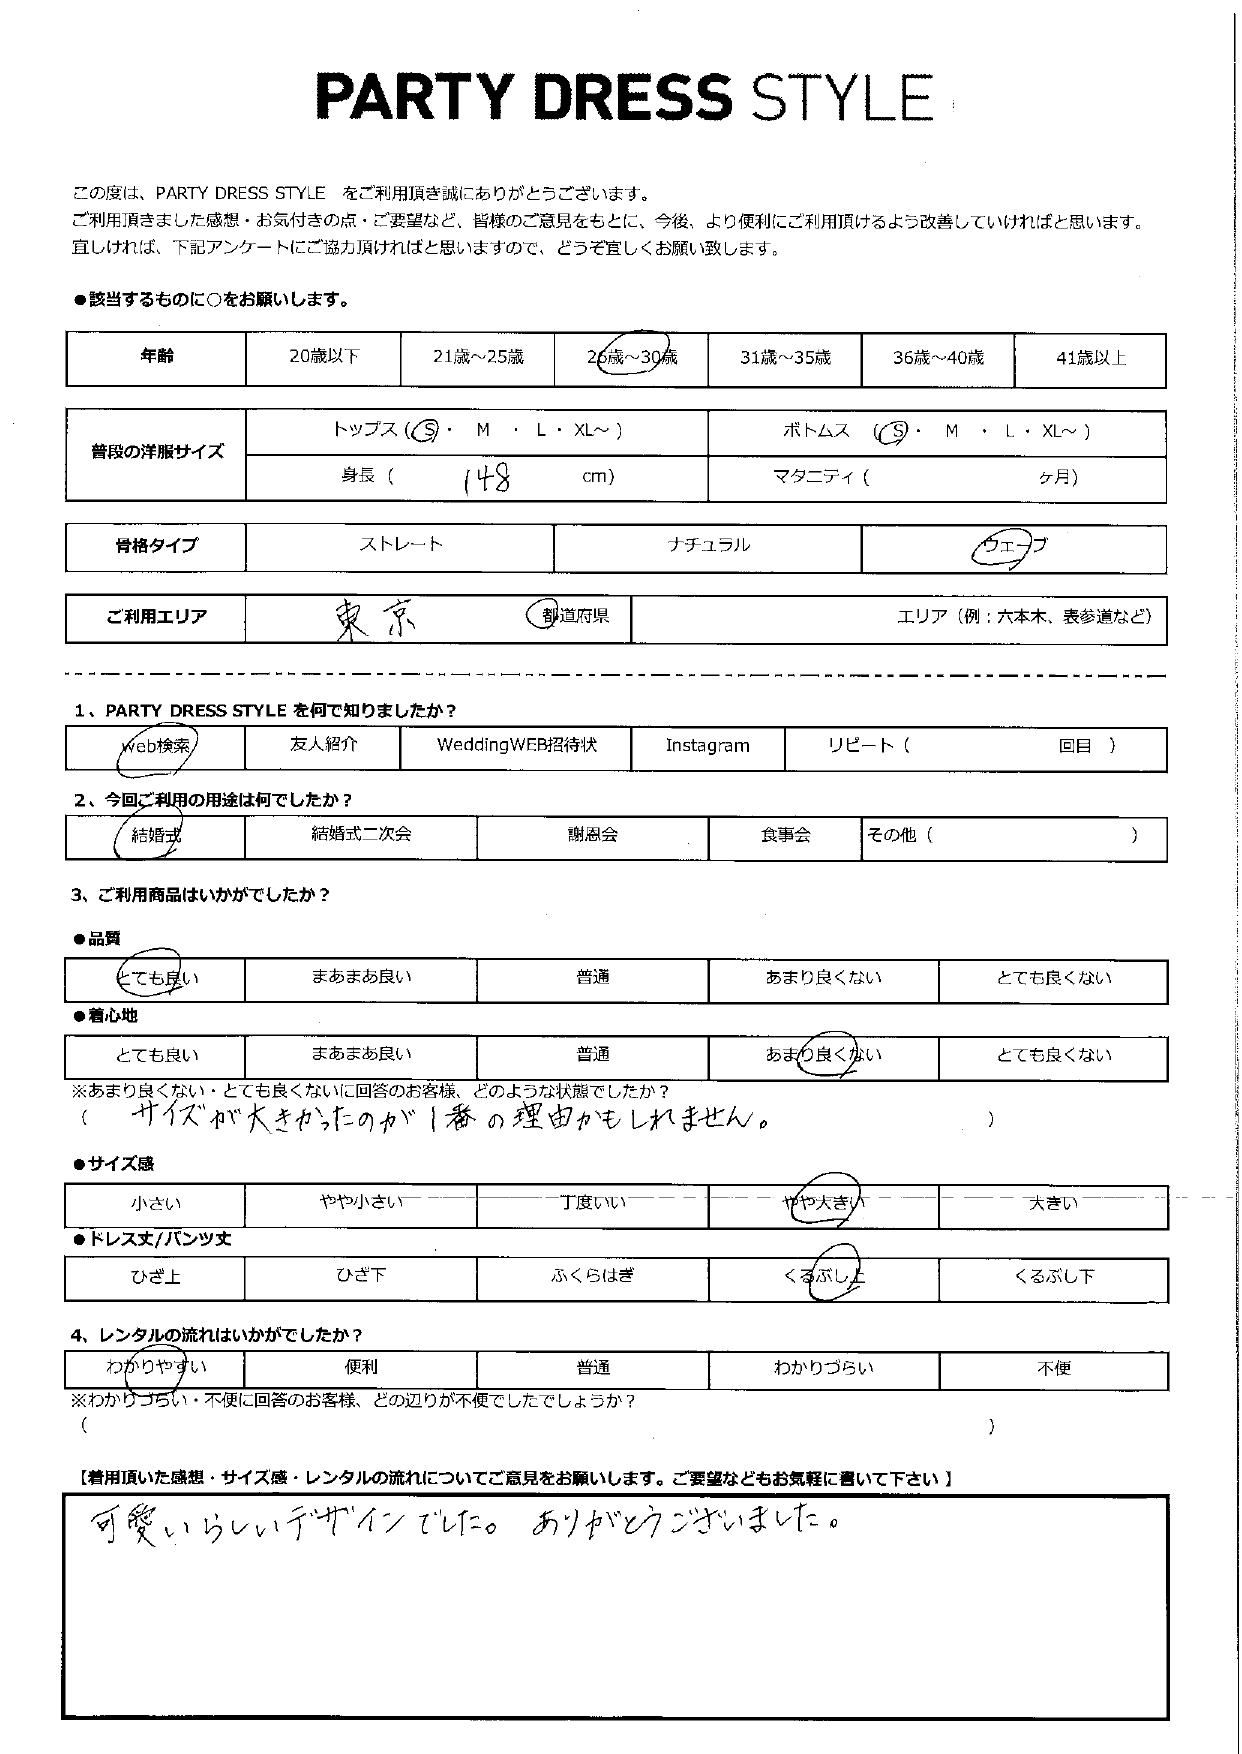 PARTY DRESS STYLE
この度は、PARTY DRESS STYLE をご利用頂き誠にありがとうございます。
ご利用頂きました感想・お気付きの点・ご要望など、皆様のご意見をもとに、今後、より便利にご利用頂けるよう改善していければと思います。
宜しければ、下記アンケートにご協力頂ければと思いますので、どうぞ宜しくお願い致します。
●該当するものに○をお願いします。
年齢 20歳以下 21歳～25歳 26歳～30歳 31歳～35歳 36歳～40歳 41歳以上
普段の洋服サイズ
トップス (S・ M ・ L・ XL～ ) ボトムス (S・ M ・ L・ XL～ )
身長 ( 148 cm) マタニティ ( ヶ月)
骨格タイプ ストレート ナチュラル ウェーブ
ご利用エリア 東京 都道府県 エリア（例：六本木、表参道など）
1、PARTY DRESS STYLE を何で知りましたか？
web検索 友人紹介 WeddingWEB招待状 Instagram リピート ( 回目 )
2、今回ご利用の用途は何でしたか？
結婚式 結婚式二次会 謝恩会 食事会 その他 ( )
3、ご利用商品はいかがでしたか？
●品質
とても良い まあまあ良い 普通 あまり良くない とても良くない
●着心地
とても良い まあまあ良い 普通 あまり良くない とても良くない
※あまり良くない・とても良くないに回答のお客様、どのような状態でしたか？
( サイズが大きかったのが1番の理由かもしれません。 )
●サイズ感
小さい やや小さい 丁度いい やや大きい 大きい
●ドレス丈/パンツ丈
ひざ上 ひざ下 ふくらはぎ くるぶし上 くるぶし下
4、レンタルの流れはいかがでしたか？
わかりやすい 便利 普通 わかりづらい 不便
※わかりづらい・不便に回答のお客様、どの辺りが不便でしたでしょうか？
( )
【着用頂いた感想・サイズ感・レンタルの流れについてご意見をお願いします。ご要望などもお気軽に書いて下さい 】
可愛いらしいデザインでした。 ありがとうございました。